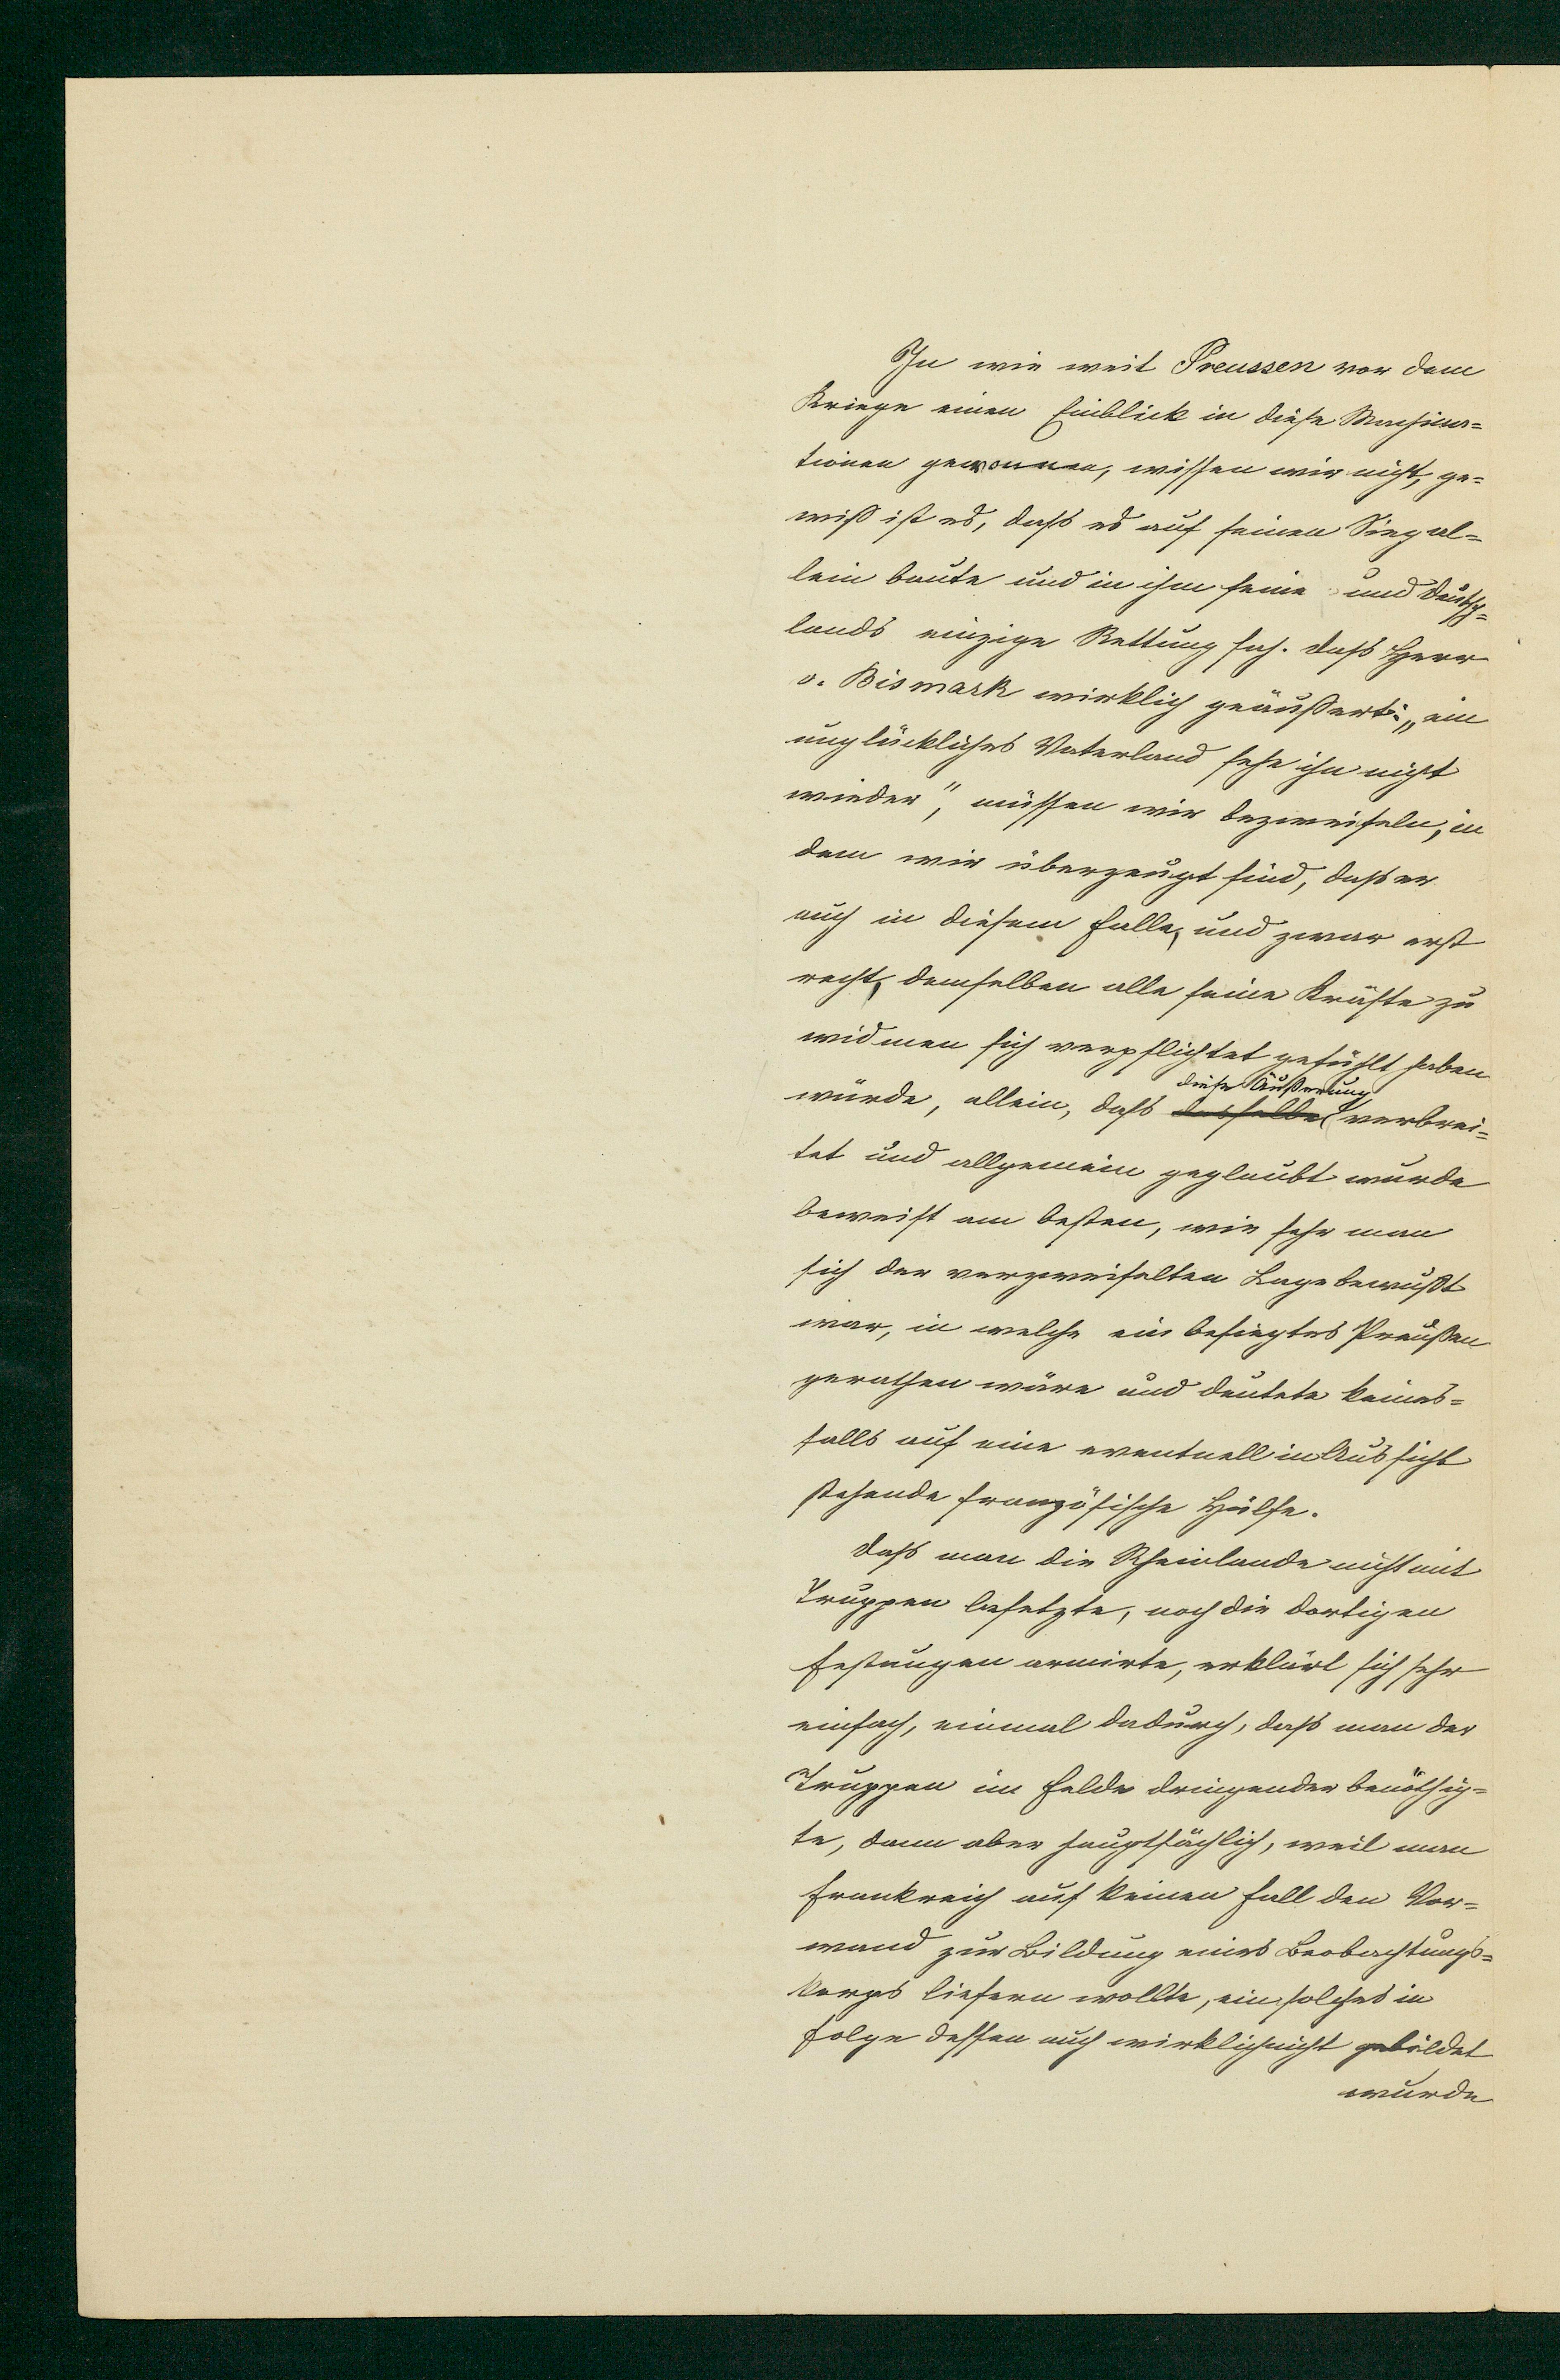 In wie weit Preussen vor dem
Kriege einen Einblick in diese Machina=
tionen gewonnen, wissen wir nicht, ge=
wiß ist es, daß es auf seinen Sieg al=
lein baute und in ihm seine und Deutsch=
lands einzige Rettung sah. Daß Herr
v. Bismark wirklich geäußert: „ein
unglückliches Vaterland sehe ihn nicht
wieder", müssen wir bezweifeln, in
dem wir überzeugt sind, daß er
auch in diesem Falle, und zwar erst
recht, demselben alle seine Kräfte zu
widmen sich verpflichtet gefühlt haben
diese Äußerung
würde, allein, daß dasselbe verbrei=
tet und allgemein geglaubt wurde
beweist am besten, wie sehr man
sich der verzweifelten Lage bewußt
war, in welche ein besiegtes Preußen
gerathen wäre und deutete keines=
falls auf eine eventuell in Aussicht
stehende französische Hülfe.
Daß man die Rheinlande nicht mit
Truppen besetzte, noch die dortigen
Festungen armirte, erklärt sich sehr
einfach, einmal dadurch, daß man der
Truppen im Felde dringender benöthig=
te, dann aber hauptsächlich, weil man
Frankreich auf keinen Fall den Vor=
wand zur Bildung eines Beobachtungs=
korps liefern wollte, ein solches in
Folge dessen auch wirklich nicht gebildet
wurde